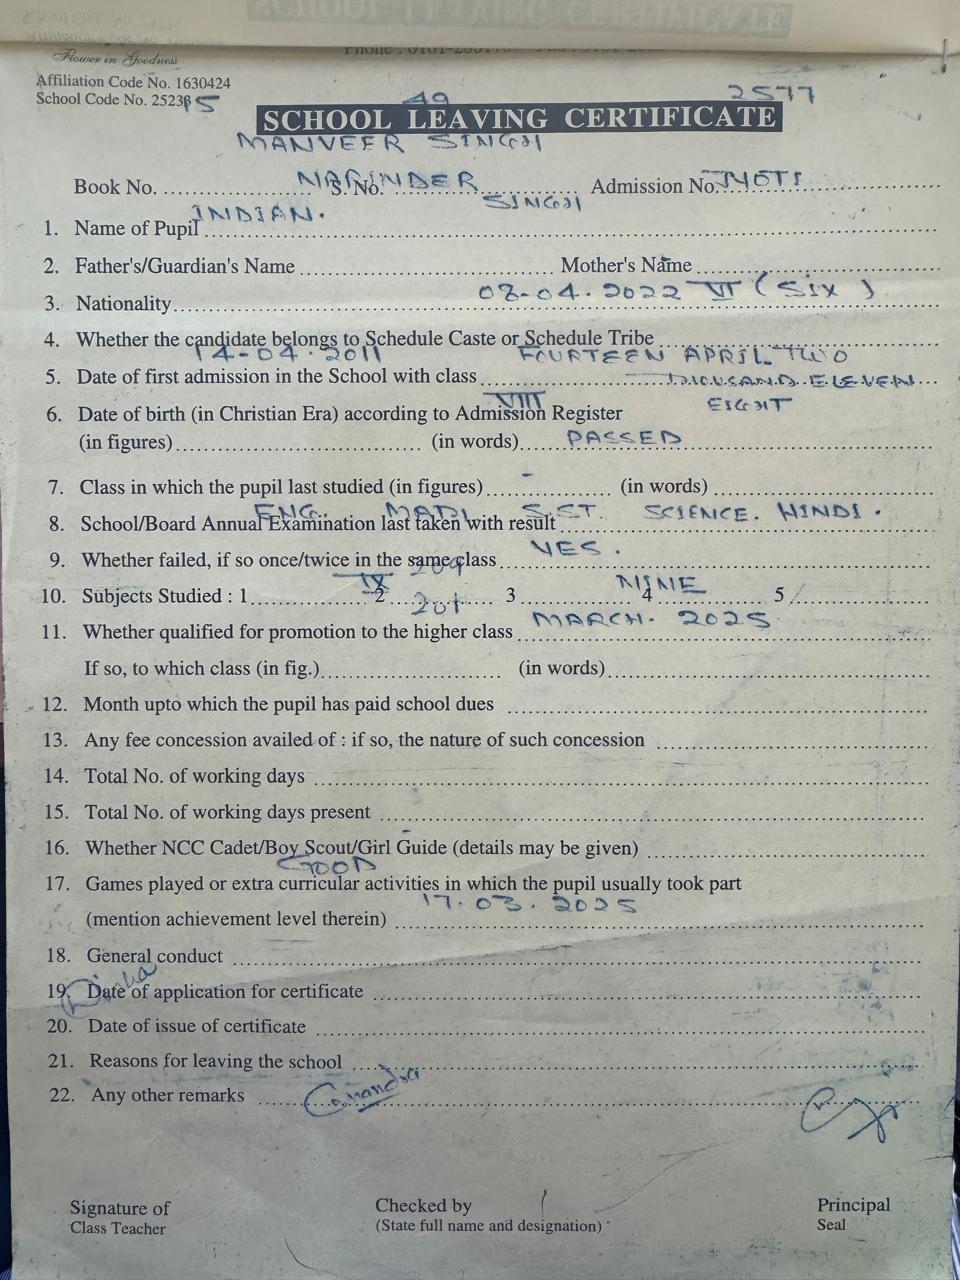 Flower in Goodness
Affiliation Code No. 1630424
School Code No. 25235
49 2577
SCHOOL LEAVING CERTIFICATE
MANVEER SINGH
Book No. S. No. NARINDER Admission No. JYOTI
SINGH
INDIAN.
1. Name of Pupil
2. Father's/Guardian's Name Mother's Name
08-04-2022 VI (SIX)
3. Nationality
4. Whether the candidate belongs to Schedule Caste or Schedule Tribe
14-04-2011 FOURTEEN APRIL TWO
5. Date of first admission in the School with class THOUSAND ELEVEN
VIII EIGHT
6. Date of birth (in Christian Era) according to Admission Register
(in figures) (in words) PASSED
-
7. Class in which the pupil last studied (in figures) (in words)
ENG. MATH S.ST. SCIENCE. HINDI.
8. School/Board Annual Examination last taken with result
YES.
9. Whether failed, if so once/twice in the same class
IX 209 NINE
10. Subjects Studied : 1 2 3 4 5
201 MARCH. 2025
11. Whether qualified for promotion to the higher class
If so, to which class (in fig.) (in words)
12. Month upto which the pupil has paid school dues
13. Any fee concession availed of : if so, the nature of such concession
14. Total No. of working days
15. Total No. of working days present
-
16. Whether NCC Cadet/Boy Scout/Girl Guide (details may be given)
GOOD
17. Games played or extra curricular activities in which the pupil usually took part
17.03.2025
(mention achievement level therein)
18. General conduct
19. Date of application for certificate
20. Date of issue of certificate
21. Reasons for leaving the school
22. Any other remarks
Signature of Checked by Principal
Class Teacher (State full name and designation) Seal